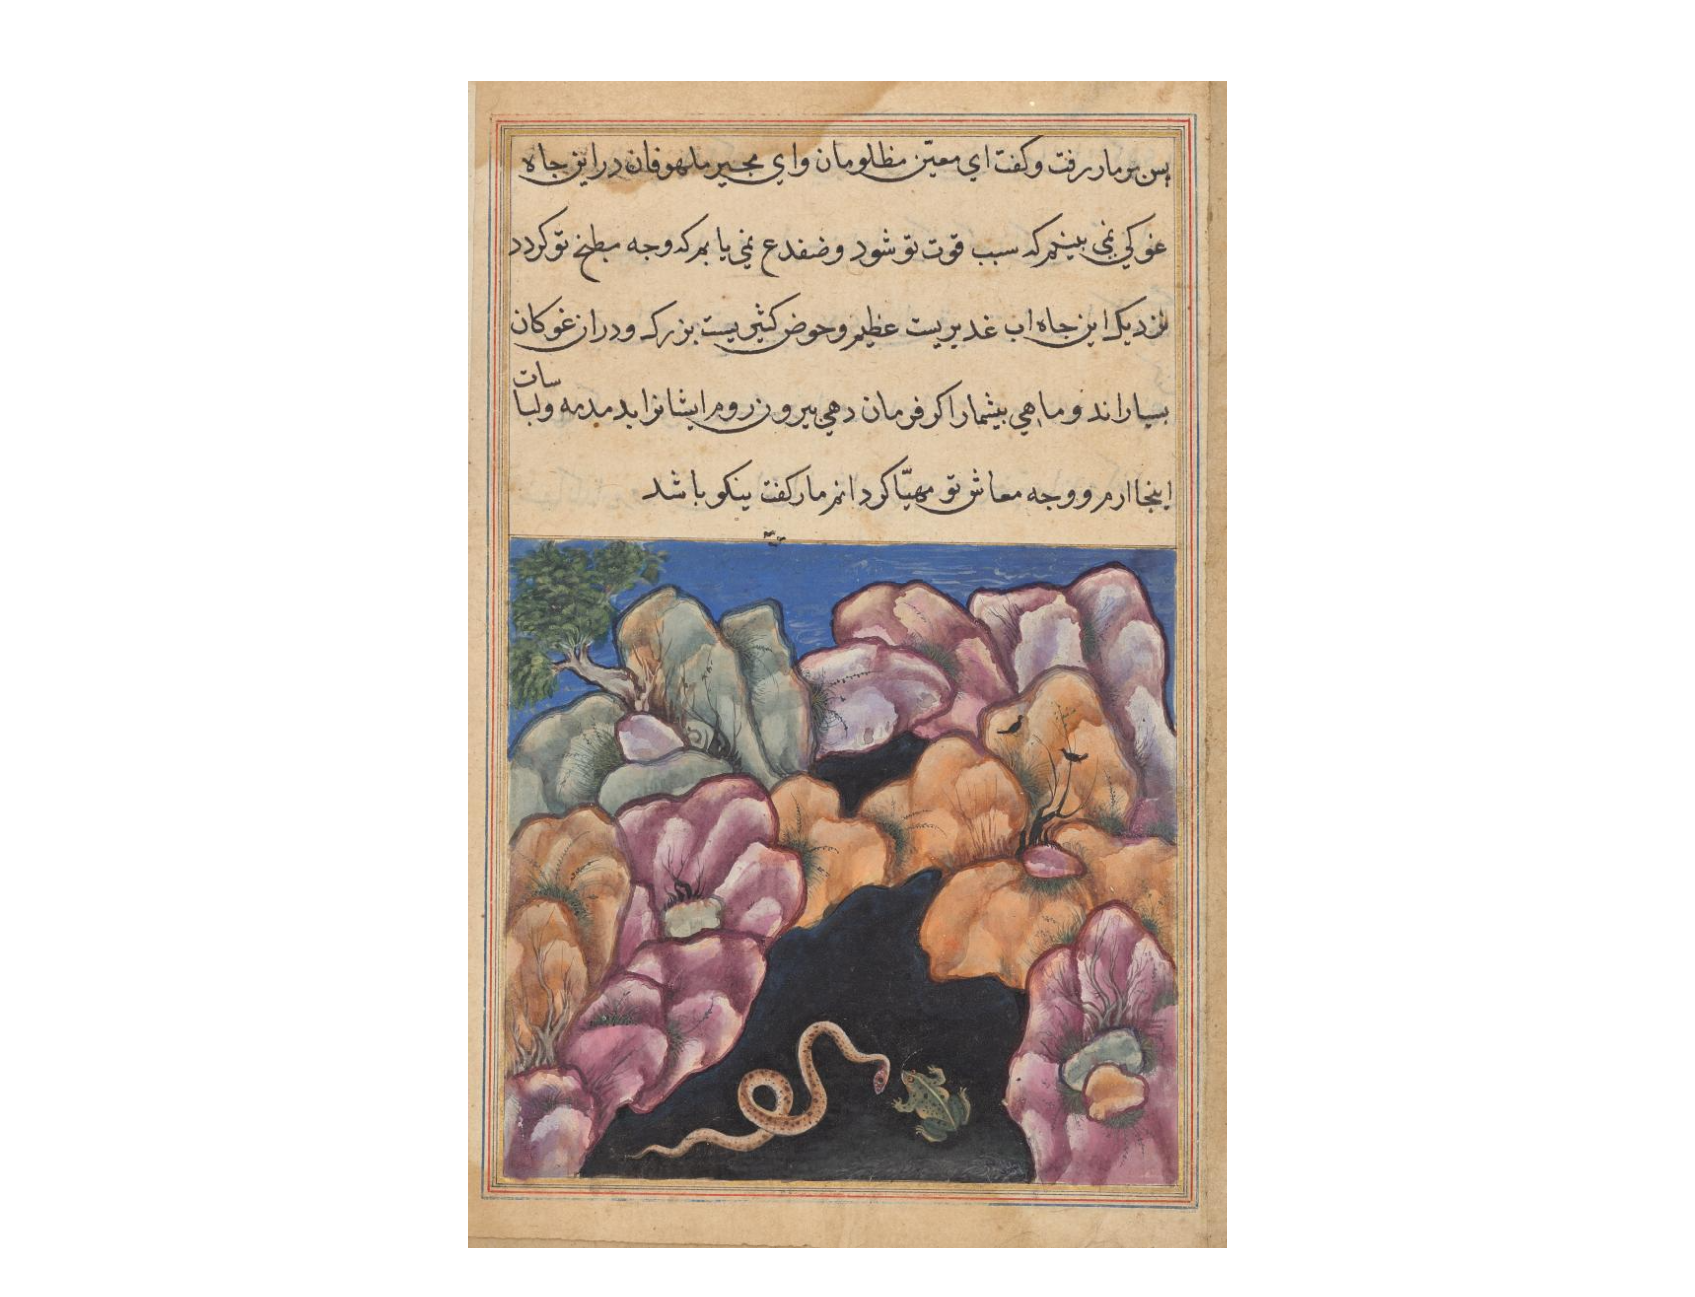 پس بر مار رفت و کفت ای معین مظلومان وای مجیر ملهوفان دراین جاه
غوکی نمی بینم که سبب قوت تو شود و ضفدع نمی یابم که وجه مطبخ تو کردد
نزدیک این جاه اب غدیریست عظیم و حوض کثیریست بزرک و دران غوکان
بسیاراند و ماهی بیشمار اکر فرمان دهی بیرون روم ایشانرا بدمدمه ولباسات
اینجا ارم و وجه معاش تو مهیّا کردانم مار کفت نیکو باشد